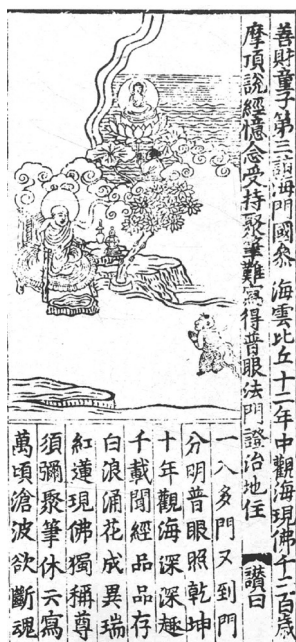 善財童子第三詣海門國參　海雲比丘十二年中觀海現佛千二百歲
摩頂說經憶念受持聚筆難寫得普眼法門證治地住　讚曰
一入多門又到門
分明普眼照乾坤
十年觀海深深趣
千載聞經品品存
白浪涌花成異瑞
紅蓮現佛獨稱尊
須彌聚筆休云寫
萬頃滄波欲斷魂